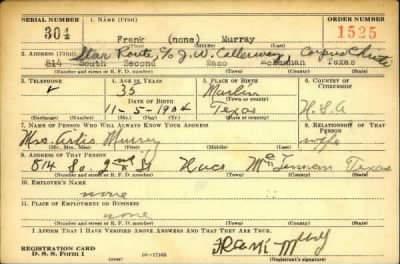 SERIAL NUMBER 1. NAME (Print) ORDER NUMBER
304 Frank (none) Murray 1525
(First) (Middle) (Last)
Star Route c/o J.W. Calloway, Corpus Christi
2. ADDRESS (Print)
814 South Second Waco McLennan Texas
(Number and street or R. F. D. number) (Town) (County) (State)
3. TELEPHONE 4. AGE IN YEARS 5. PLACE OF BIRTH 6. COUNTRY OF CITIZENSHIP
35 Marlin
DATE OF BIRTH (Town or county)
11-5-1904 Texas U.S.A
(Exchange) (Number) (Mo.) (Day) (Yr.) (State or country)
7. NAME OF PERSON WHO WILL ALWAYS KNOW YOUR ADDRESS 8. RELATIONSHIP OF THAT PERSON
Mrs. Murry wife
(Mr., Mrs., Miss) (First) (Middle) (Last)
9. ADDRESS OF THAT PERSON
814 So. 2nd St Waco McLennan Texas
(Number and street or R. F. D. number) (Town) (County) (State)
10. EMPLOYER'S NAME
none
11. PLACE OF EMPLOYMENT OR BUSINESS
none
(Number and street or R. F. D. number) (Town) (County) (State)
I AFFIRM THAT I HAVE VERIFIED ABOVE ANSWERS AND THAT THEY ARE TRUE.
REGISTRATION CARD
D. S. S. Form 1 16—17105 (Registrant's signature)